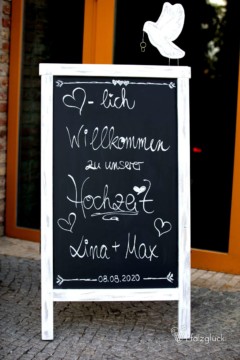 ♡-lich
Willkommen
zu unserer
Hochzeit
Lina + Max
08.08.2020
Holzglück